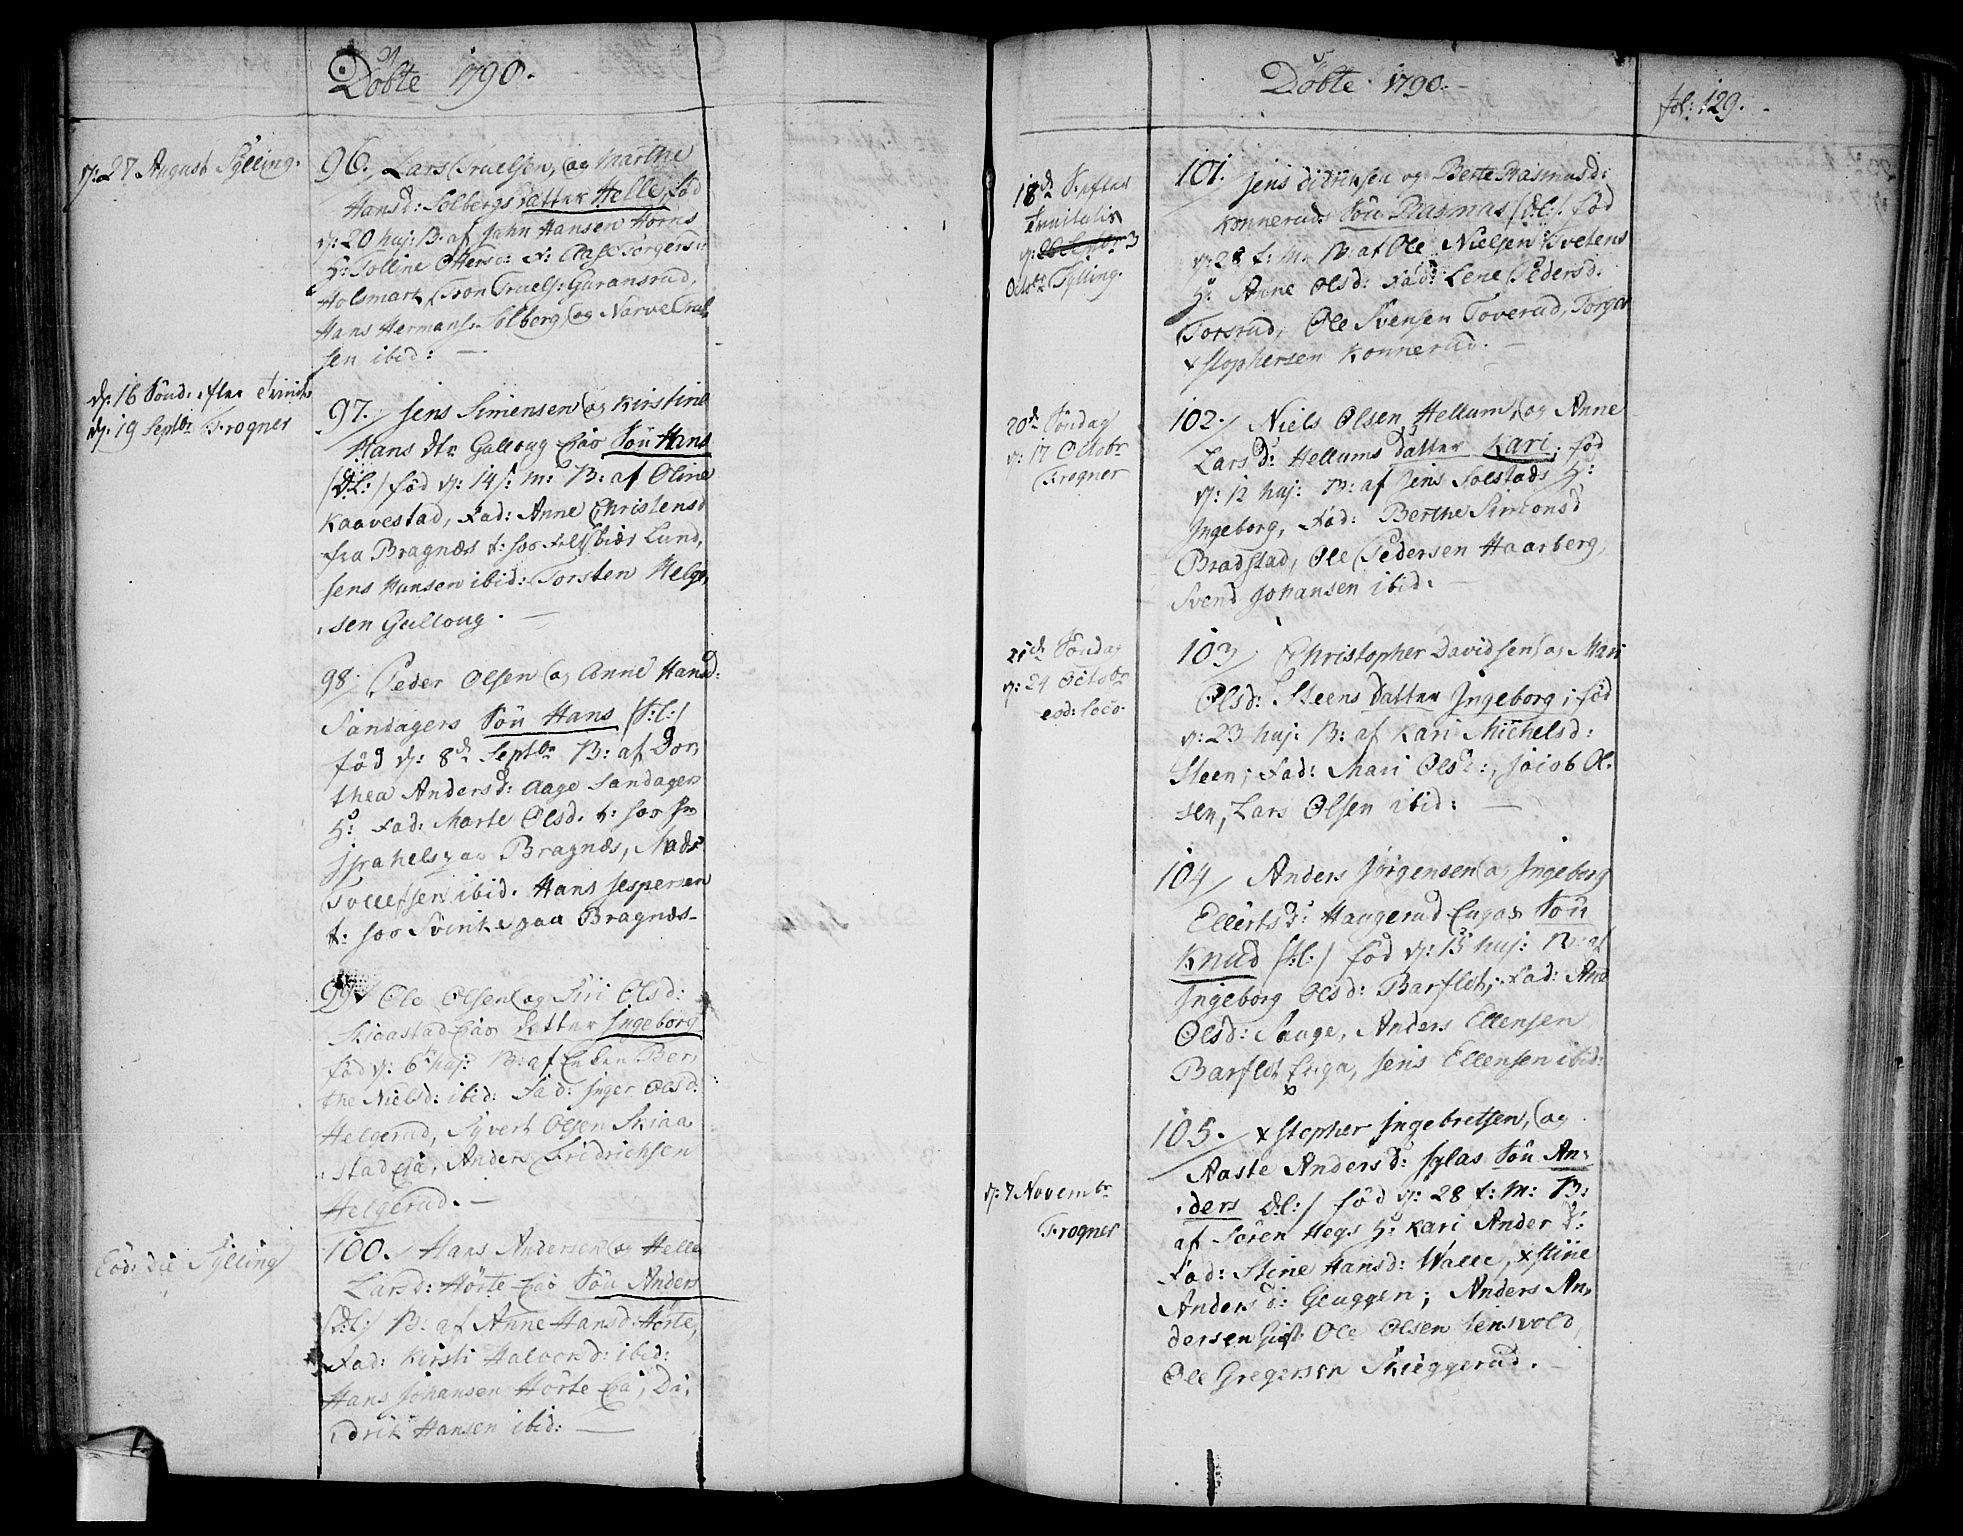 Döbte 1790.
d: 27 August Sylling.
96. Lars Truelsen, og Marthe
Hansd: Solbergs Datter Helle, föd
d: 20 huj: B. af John Hansen Horns
H: Tolline Ottersd: F: Aase Törgersd:
Holsmark, Tron Truels: Garansrud,
Hans Hermans: Solberg, og Narve Trul-
sen ibid:
d: 16 Sönd: efter Trinit:
d: 19 Septbr Frogner
97. Jens Simensen og Kirstine
Hans dtr Gulloug Eiö Sön Hans
(D:l:) föd d: 14 f: m: B: af Oline
Kaavestad, Fad: Anne Christensd
fra Bragnæs t: hos Lund,
Jens Hansen ibid: Torsten Helge-
sen Gulloug.
98/ Peder Olsen og Anne Hansd:
Sandagers Sön Hans (S:l:)
föd d: 8de Septbr B: af Dor-
thea Andersd: Aage Sandagers
H: Fad: Marte Olsd. t: hos Hr
paa Bragnæs, Mads
Tollefsen ibid. Hans Jespersen
t: hos Svinke paa Bragnæs-
99. Ole Olsen og Siri Olsd:
Skiaastad Eiö Datter Ingeborg
föd d: 6te huj: B: af Enken Ber-
the Nielsd: ibid: Fad: Inger Olsd:
Helgerud, Syvert Olsen Skiaa-
stad Eiä, Anders Fridrichsen
Helgerud.
Eod: die Sylling
100. Hans Andersen og Helle
Larsd: Hörte Eiö Sön Anders
(D:l:) B. af Anne Hansd: Hörte,
Fad: Kirsti Halvorsd: ibid:
Hans Johansen Hörte Eiä, Di-
drik Hansen ibid:
Döbte 1790.
fol: 129.
18de S: efter
Trinitatis
d: 26 Septbr 3
Octobr Sylling.
101. Jens Didriksen og Berte Rasmusd:
Konneruds Sön Rasmus (D:l:) föd
d: 28 f: M: B: af Ole Nielsen Tvetens
H: Anne Olsd: Fad: Lene Pedersd:
Torsrud, Ole Svensen Toverud, Torger
xstophersen Konnerud.
20de Söndag
d: 17 Octobr
Frogner
102. Niels Olsen Hellum, og Anne
Larsd: Hellums Datter Kari, föd
d: 12 huj: B: af Jens Solstads H:
Ingeborg, Fad: Berthe Simonsd
Bradstad, Ole Pedersen Haarberg,
Svend Johansen ibid:
21de Söndag
d: 24 Octobr
eod: loco.
103/ Christopher Davidsen og Mari
Olsd: Steens Datter Ingeborg, föd
d: 23 huj: B: af Kari Michelsd:
Steen, Fad: Mari Olsd:, Jacob Ol-
sen, Lars Olsen ibid:
104/ Anders Jörgensen og Ingeborg
Ellertsd: Haugerud Eigas Sön
Knud (S:l:) föd d: 15 huj: B: af
Ingeborg Olsd: Barflet, Fad: Ane
Olsd: Sauge, Anders Ellensen
Barflet Eiga, Jens Ellensen ibid:
d: 7 Novembr
Frogner
105. xstopher Ingebretsen, og
Aaste Andersd: Iglas Sön An-
ders D:l:) föd d: 28 f: M: B:
af Sören Hegs H: Kari Ander d:
Fad: Stine Hansd: Walle, xstine
Andersd: Gluggen; Anders An-
dersen Gift Ole Olsen Lensvold,
Ole Gregersen Skieggerud.